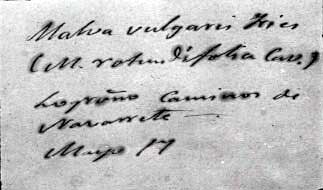 Malva vulgaris Fries
(M. rotundifolia Cav.)
Logroño Caminos de
Navarrete —
Mayo